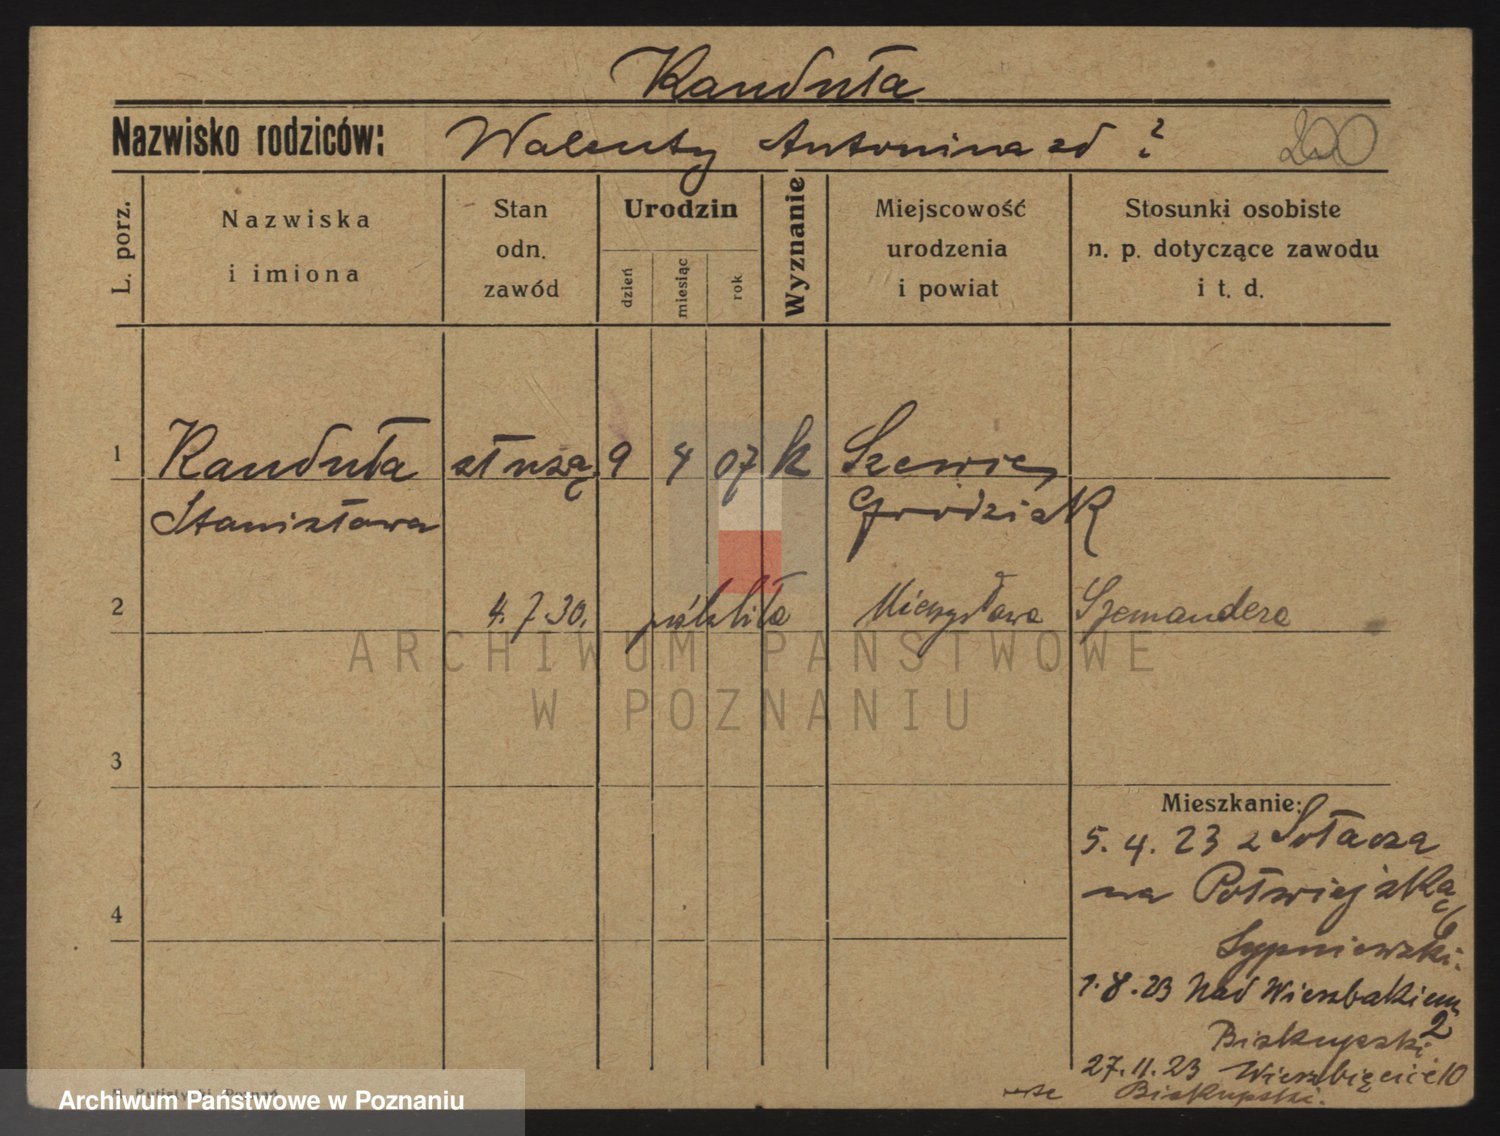 Kanduła
Nazwisko rodziców: Walenty Antonina zd ?
200
L. porz.
Nazwiska
i imiona
Stan
odn.
zawód
Urodzin
dzień
miesiąc
rok
Wyznanie
Miejscowość
urodzenia
i powiat
Stosunki osobiste
n. p. dotyczące zawodu
i t. d.
1 Kanduła służą. 9 4 07 k Szewie,
Stanisława Grodzisk
2 4.7.30. Mieczysława Szemandera
ARCHIWUM PAŃSTWOWE
W POZNANIU
3
Mieszkanie:
5.4.23 z Sołacza
na Półwiejską 6
4
Sypniewski.
1.8.23 Nad Wierzbakiem 2
Biskupski.
27.11.23 Wierzbięcice 10
Biskupski.
Archiwum Państwowe w Poznaniu